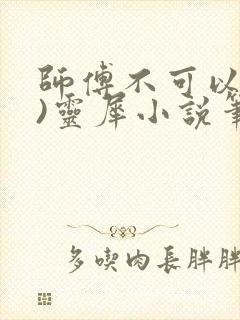 師傅不可以
)靈犀小說筆
多喫肉長胖胖